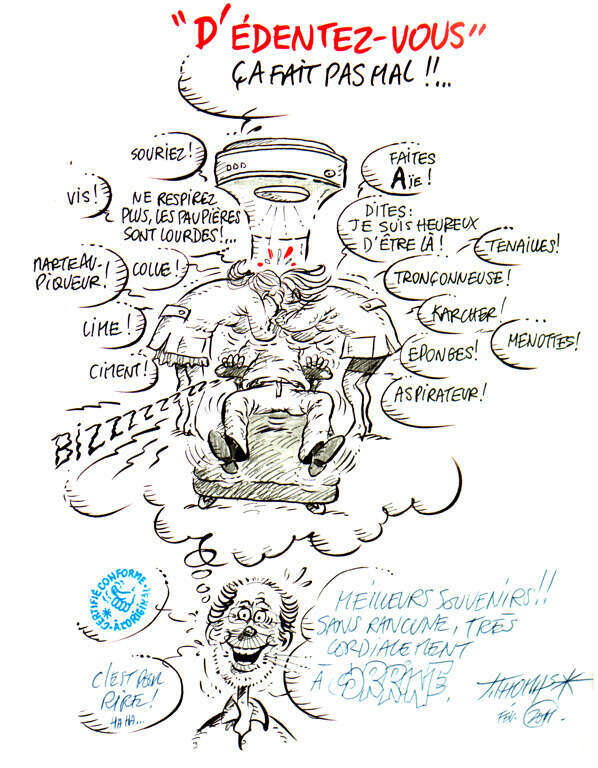 "D'ÉDENTEZ-VOUS"
ÇA FAIT PAS MAL !!...
SOURIEZ!
FAITES
AÏE!
VIS!
NE RESPIREZ
PLUS, LES PAUPIÈRES
SONT LOURDES!...
DITES:
JE SUIS HEUREUX
D'ÊTRE LÀ!
TENAILLES!
MARTEAU-
PIQUEUR!
COLLE!
TRONÇONNEUSE!
LIME!
KARCHER!
MENOTTES!
CIMENT!
EPONGES!
ASPIRATEUR!
BIZZZZZZ
CERTIFIÉ CONFORME
À L'ORIGINAL
MEILLEURS SOUVENIRS!!
SANS RANCUNE, TRÈS
CORDIALEMENT
À CORRINE.
C'EST POUR
RIRE!
HA HA...
THOMAS
FÉV. 2011.